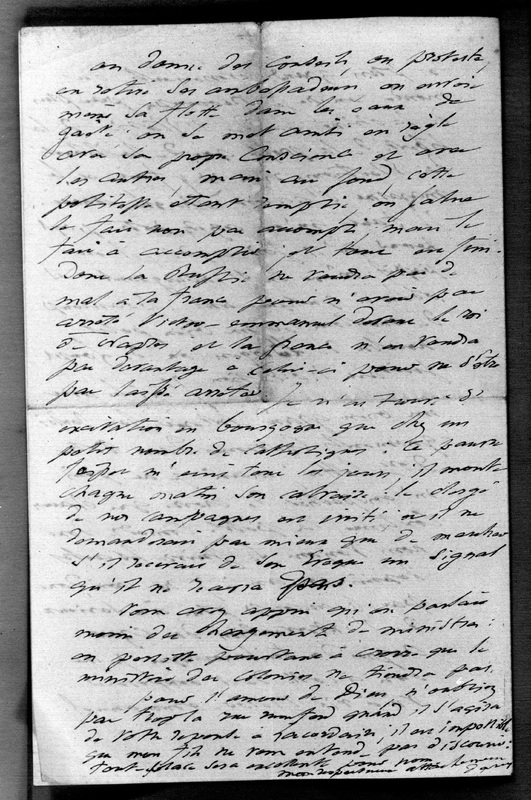 on donne des conseils, on proteste,
on retire ses ambassadeurs, on envoie
même sa flotte dans les eaux de
gaëte: on se met ainsi en règle
avec sa propre conscience et avec
les autres, mais au fond cette
politesse étant remplie on salue
le fait non pas accompli mais le
fait à accomplir, et tout est fini.
donc la Russie ne voudra pas de
mal à la france pour n'avoir pas
arrêté Victor-emmanuel devant le roi
de Naples, et la france n'en voudra
pas davantage à celui-ci pour ne s'être
pas laissé arrêter. Je n'ai trouvé d'
excitation en bourgogne que chez un
petit nombre de catholiques. Ce pauvre
m'écrit tous les jours; il monte
chaque matin son calvaire: le clergé
de nos campagnes est irrité et il ne
demanderait pas mieux que de marcher
s'il recevait de son Evêque un signal
qu'il ne recevra pas.
Vous avez appris qu'on parlait
moins des changements de ministres:
on persiste pourtant à croire que le
ministre des colonies ne tiendra pas.
pour l'amour de Dieu n'oubliez
pas trop la rue quand il s'agira
de votre réponse à Lacordaire; il est impossible
que mon fils ne vous entende pas discourir:
toute place sera excellente pour vous
mon respectueux attachement